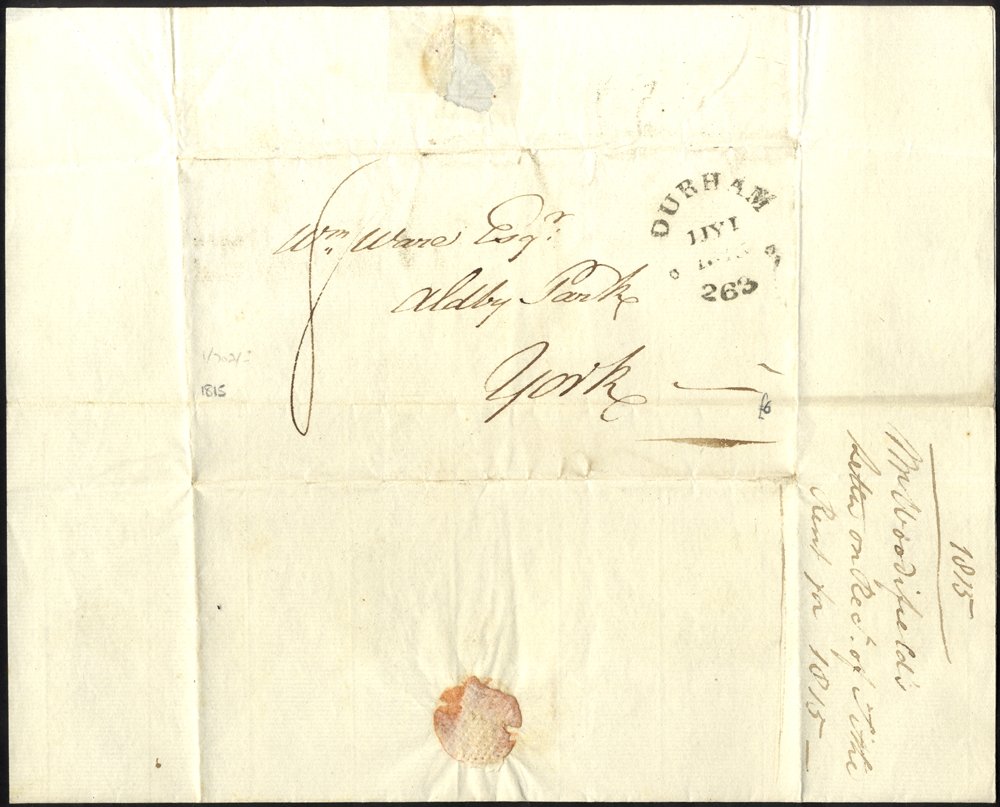 Wm Ware Esqr.
Aldby Park
York
8
DURHAM
263
1815
1815
Mr Woodifield's
Letter on Rect. of Tithe
Rent for 1815